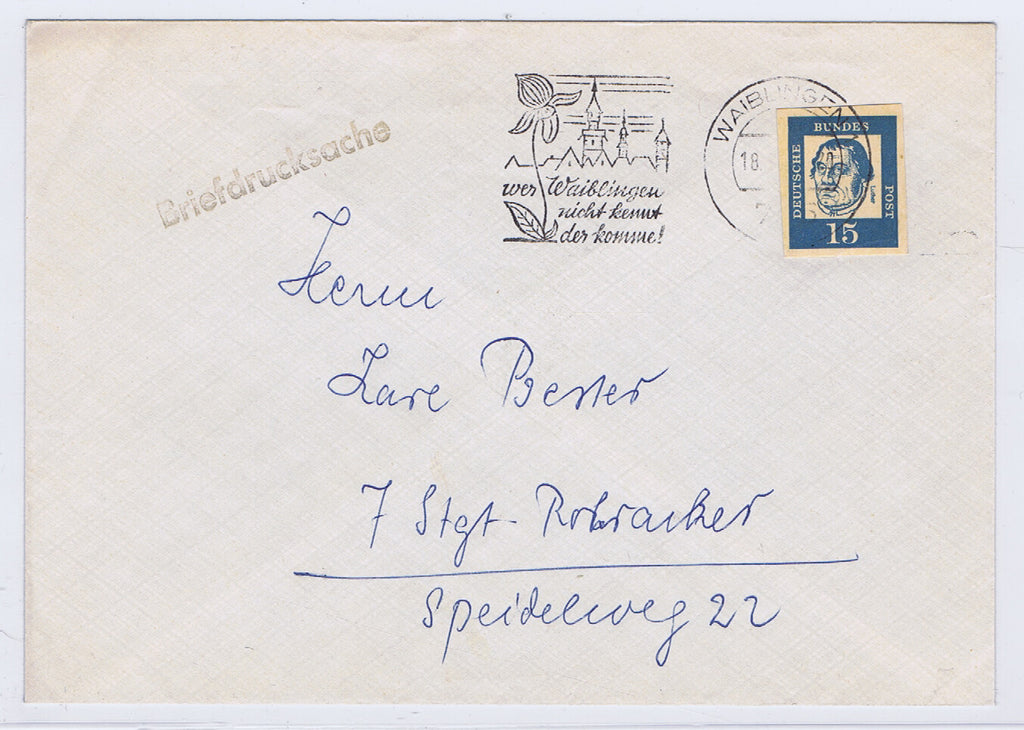 Briefdrucksache
wer Waiblingen
nicht kennt
der komme!
WAIBLINGEN
18.
7
DEUTSCHE
BUNDES
POST
15
Herrn
Bester
7 Stgt- Rohracker
Speidelweg 22